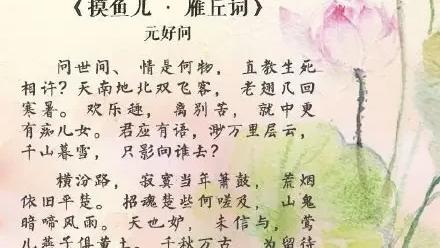 《摸鱼儿·雁丘词》
元好问
问世间、情是何物，直教生死
相许？天南地北双飞客，老翅几回
寒暑。欢乐趣，离别苦，就中更
有痴儿女。君应有语，渺万里层云，
千山暮雪，只影向谁去？
横汾路，寂寞当年箫鼓，荒烟
依旧平楚。招魂楚些何嗟及，山鬼
暗啼风雨。天也妒，未信与，莺
儿燕子俱黄土。千秋万古，为留待